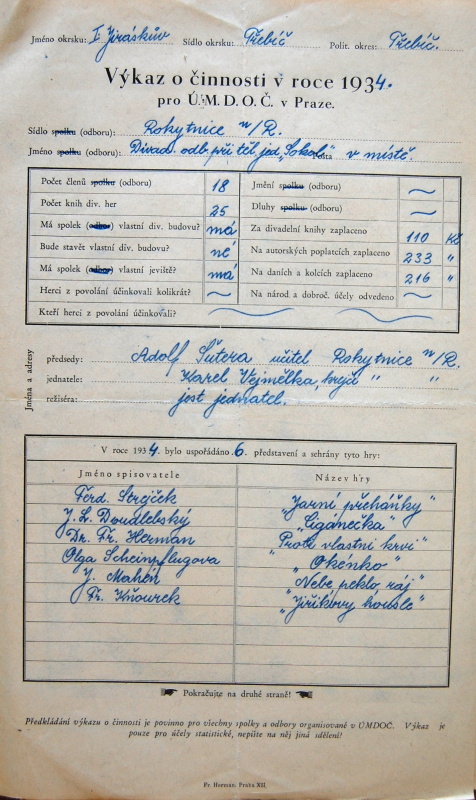 Jméno okrsku: I. Jiráskův Sídlo okrsku: Třebíč Polit. okres: Třebíč.
Výkaz o činnosti v roce 1934.
pro Ú.M.D.O.Č. v Praze.
Sídlo spolku (odboru): Rokytnice n/R.
Jméno spolku (odboru): Divad. odb. při těl. jed. „Sokol" v místě.
Počet členů spolku (odboru) 18 Jmění spolku (odboru) ~
Počet knih div. her 25 Dluhy spolku (odboru) ~
Má spolek (odbor) vlastní div. budovu? má Za divadelní knihy zaplaceno 110 Kč
Bude stavět vlastní div. budovu? né Na autorských poplatcích zaplaceno 233 "
Má spolek (odbor) vlastní jeviště? má Na daních a kolcích zaplaceno 216 "
Herci z povolání účinkovali kolikrát? ~ Na národ a dobroč. účely odvedeno ~
Kteří herci z povolání účinkovali? ~ ~
Jména a adresy
předsedy: Adolf Šutera učitel Rokytnice n/R.
jednatele: Karel Vejmělka, krejčí " "
režiséra: jest jednatel.
V roce 1934. bylo uspořádáno 6. představení a sehrány tyto hry:
Jméno spisovatele Název hry
Ferd. Strejček „Jarní přeháňky"
J. L. Doudlebský „Cigánečka"
Dr. Fr. Herman „Proti vlastní krvi"
Olga Scheinpflugova „Okénko"
J. Mahen „Nebe peklo ráj"
Fr. Kňourek „Jiříkovy housle"
Pokračujte na druhé straně!
Předkládání výkazu o činnosti je povinno pro všechny spolky a odbory organisované v ÚMDOČ. Výkaz je
pouze pro účely statistické, nepište na něj jiná sdělení!
Fr. Herman, Praha XII.